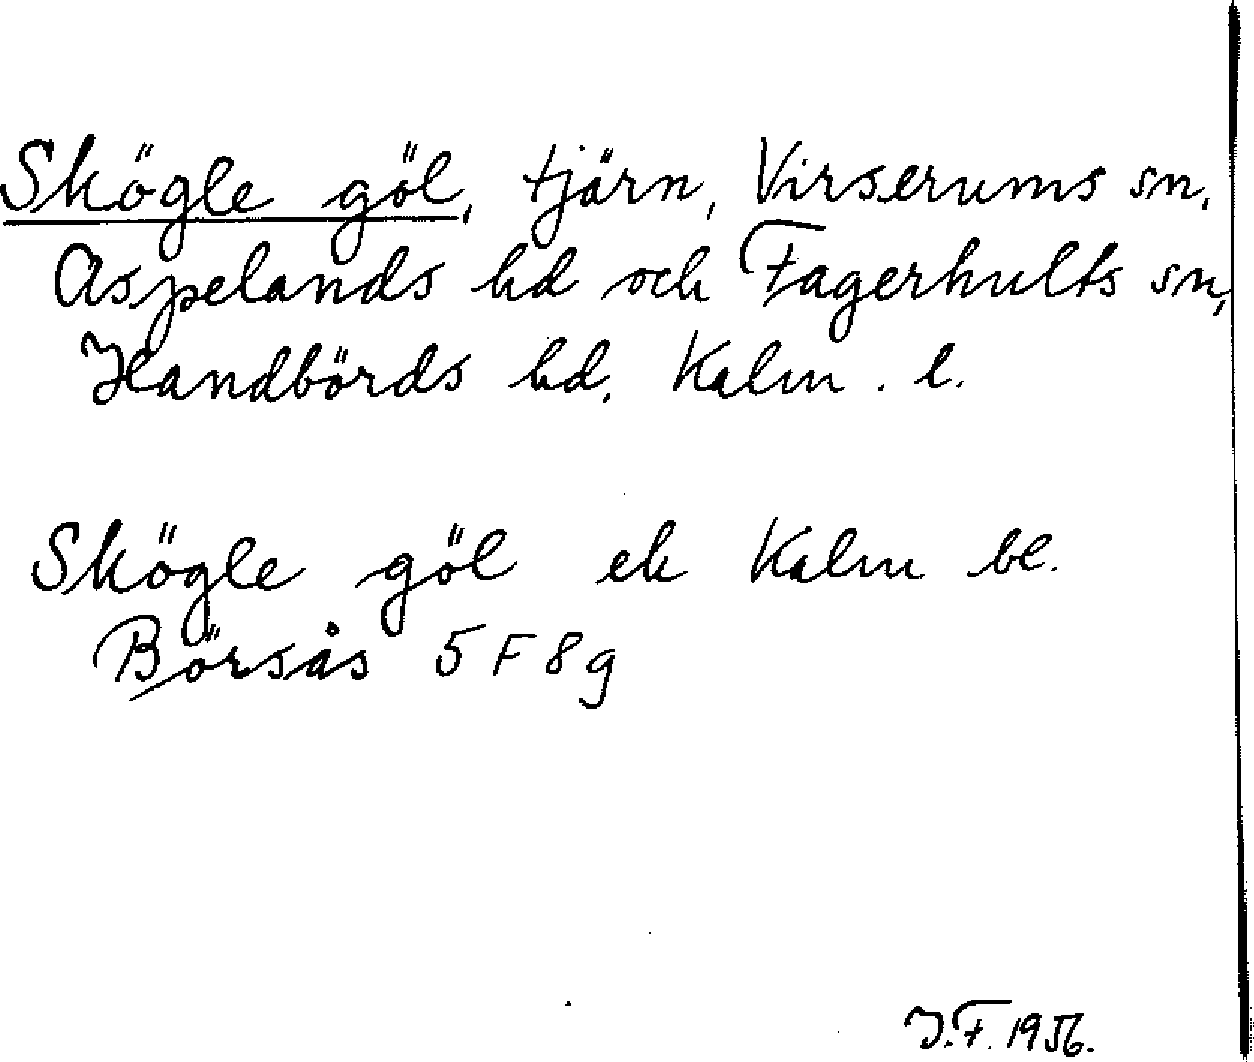 Skögle göl, tjärn, Virserums sn,
Aspelands hd och Fagerhults sn,
Handbörds hd, Kalm. l.
Skögle göl ek Kalm bl.
Börsås 5F8g
J.F. 1956.